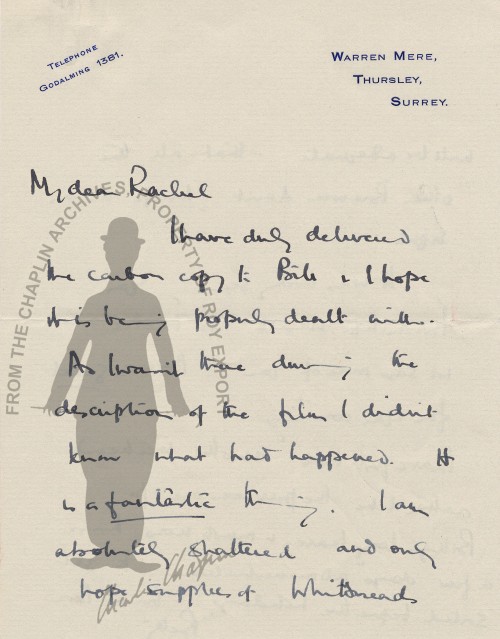 TELEPHONE
GODALMING 1381.
WARREN MERE,
THURSLEY,
SURREY.
My dear Rachel
I have duly delivered
the carbon copy to & I hope
it is being properly dealt with.
As I wasn't there during the
description of the film I didn't
know what had happened. It
is a fantastic thing. I am
absolutely shattered and only
hope supplies of Whitbreads
FROM THE CHAPLIN ARCHIVES, PROPERTY OF ROY EXPORT
Charlie Chaplin